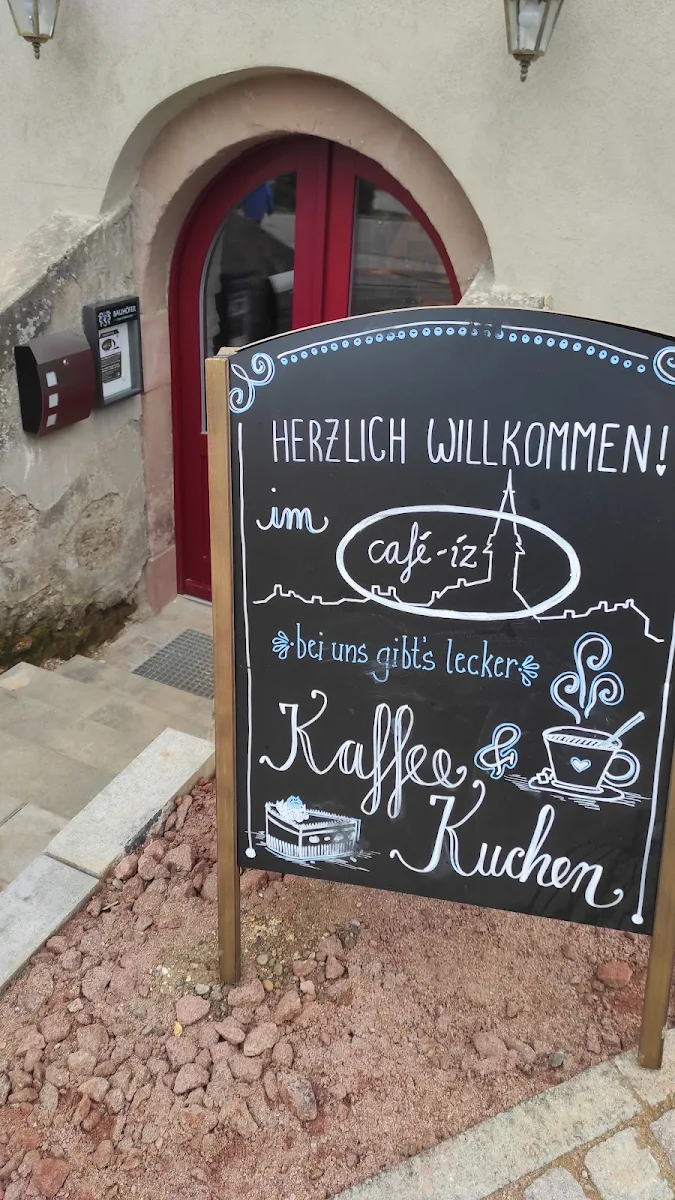 BAUHÖFER
HERZLICH WILLKOMMEN!
im
café-iz
bei uns gibt's lecker
Kaffee &
Kuchen